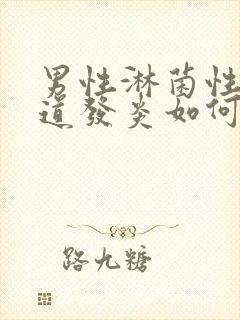 男性淋菌性
道發炎如何
路九糖